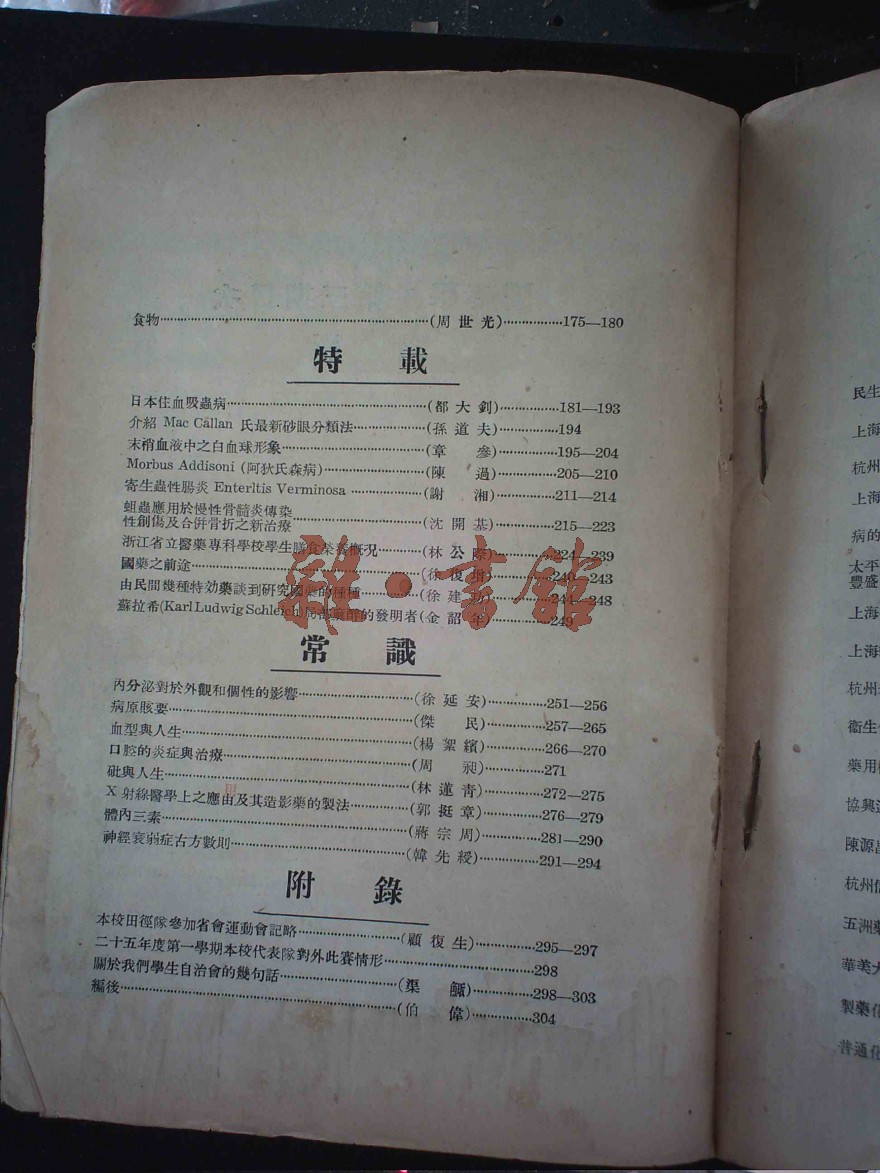 食物……(周世光)……175—180
特載
日本住血吸蟲病……(都大釗)……181—193
介紹 Mac Callan 氏最新砂眼分類法……(孫道夫)……194
末梢血液中之白血球形象……(章參)……195—204
Morbus Addisoni (阿狄氏森病)……(陳過)……205—210
寄生蟲性腸炎 Enterltis Verminosa……(謝湘)……211—214
蛆蟲應用於慢性骨髓炎傳染
性創傷及合併骨折之新治療……(沈開基)……215—223
浙江省立醫藥專科學校學生膳食榮養概況……(林公際)……224—239
國藥之前途……(徐復增)……240—243
由民間幾種特効藥談到研究國藥的種種……(徐建勛)……244—248
蘇拉希(Karl Ludwig Schleich)局部麻醉的發明者(金韶年)……249
雜·書館
常識
內分泌對於外觀和個性的影響……(徐延安)……251—256
病原賅要……(傑民)……257—265
血型與人生……(楊絜繽)……266—270
口腔的炎症與治療……(周昶)……271
砒與人生……(林蓮青)……272—275
X射線醫學上之應由及其造影藥的製法……(郭挺章)……276—279
體內三素……(蔣宗周)……281—290
神經衰弱症古方數則……(韓先綬)……291—294
附錄
本校田徑隊參加省會運動會記略……(顧復生)……295—297
二十五年度第一學期本校代表隊對外此賽情形……298
關於我們學生自治會的幾句話……(渠)……298—303
編後……(伯偉)……304
民生
上海
杭州
上海
病的
太平
豐盛
上海
上海
杭州
衞生
藥用
協興
陳源昌
杭州
五洲藥
華美大
製藥
普通化